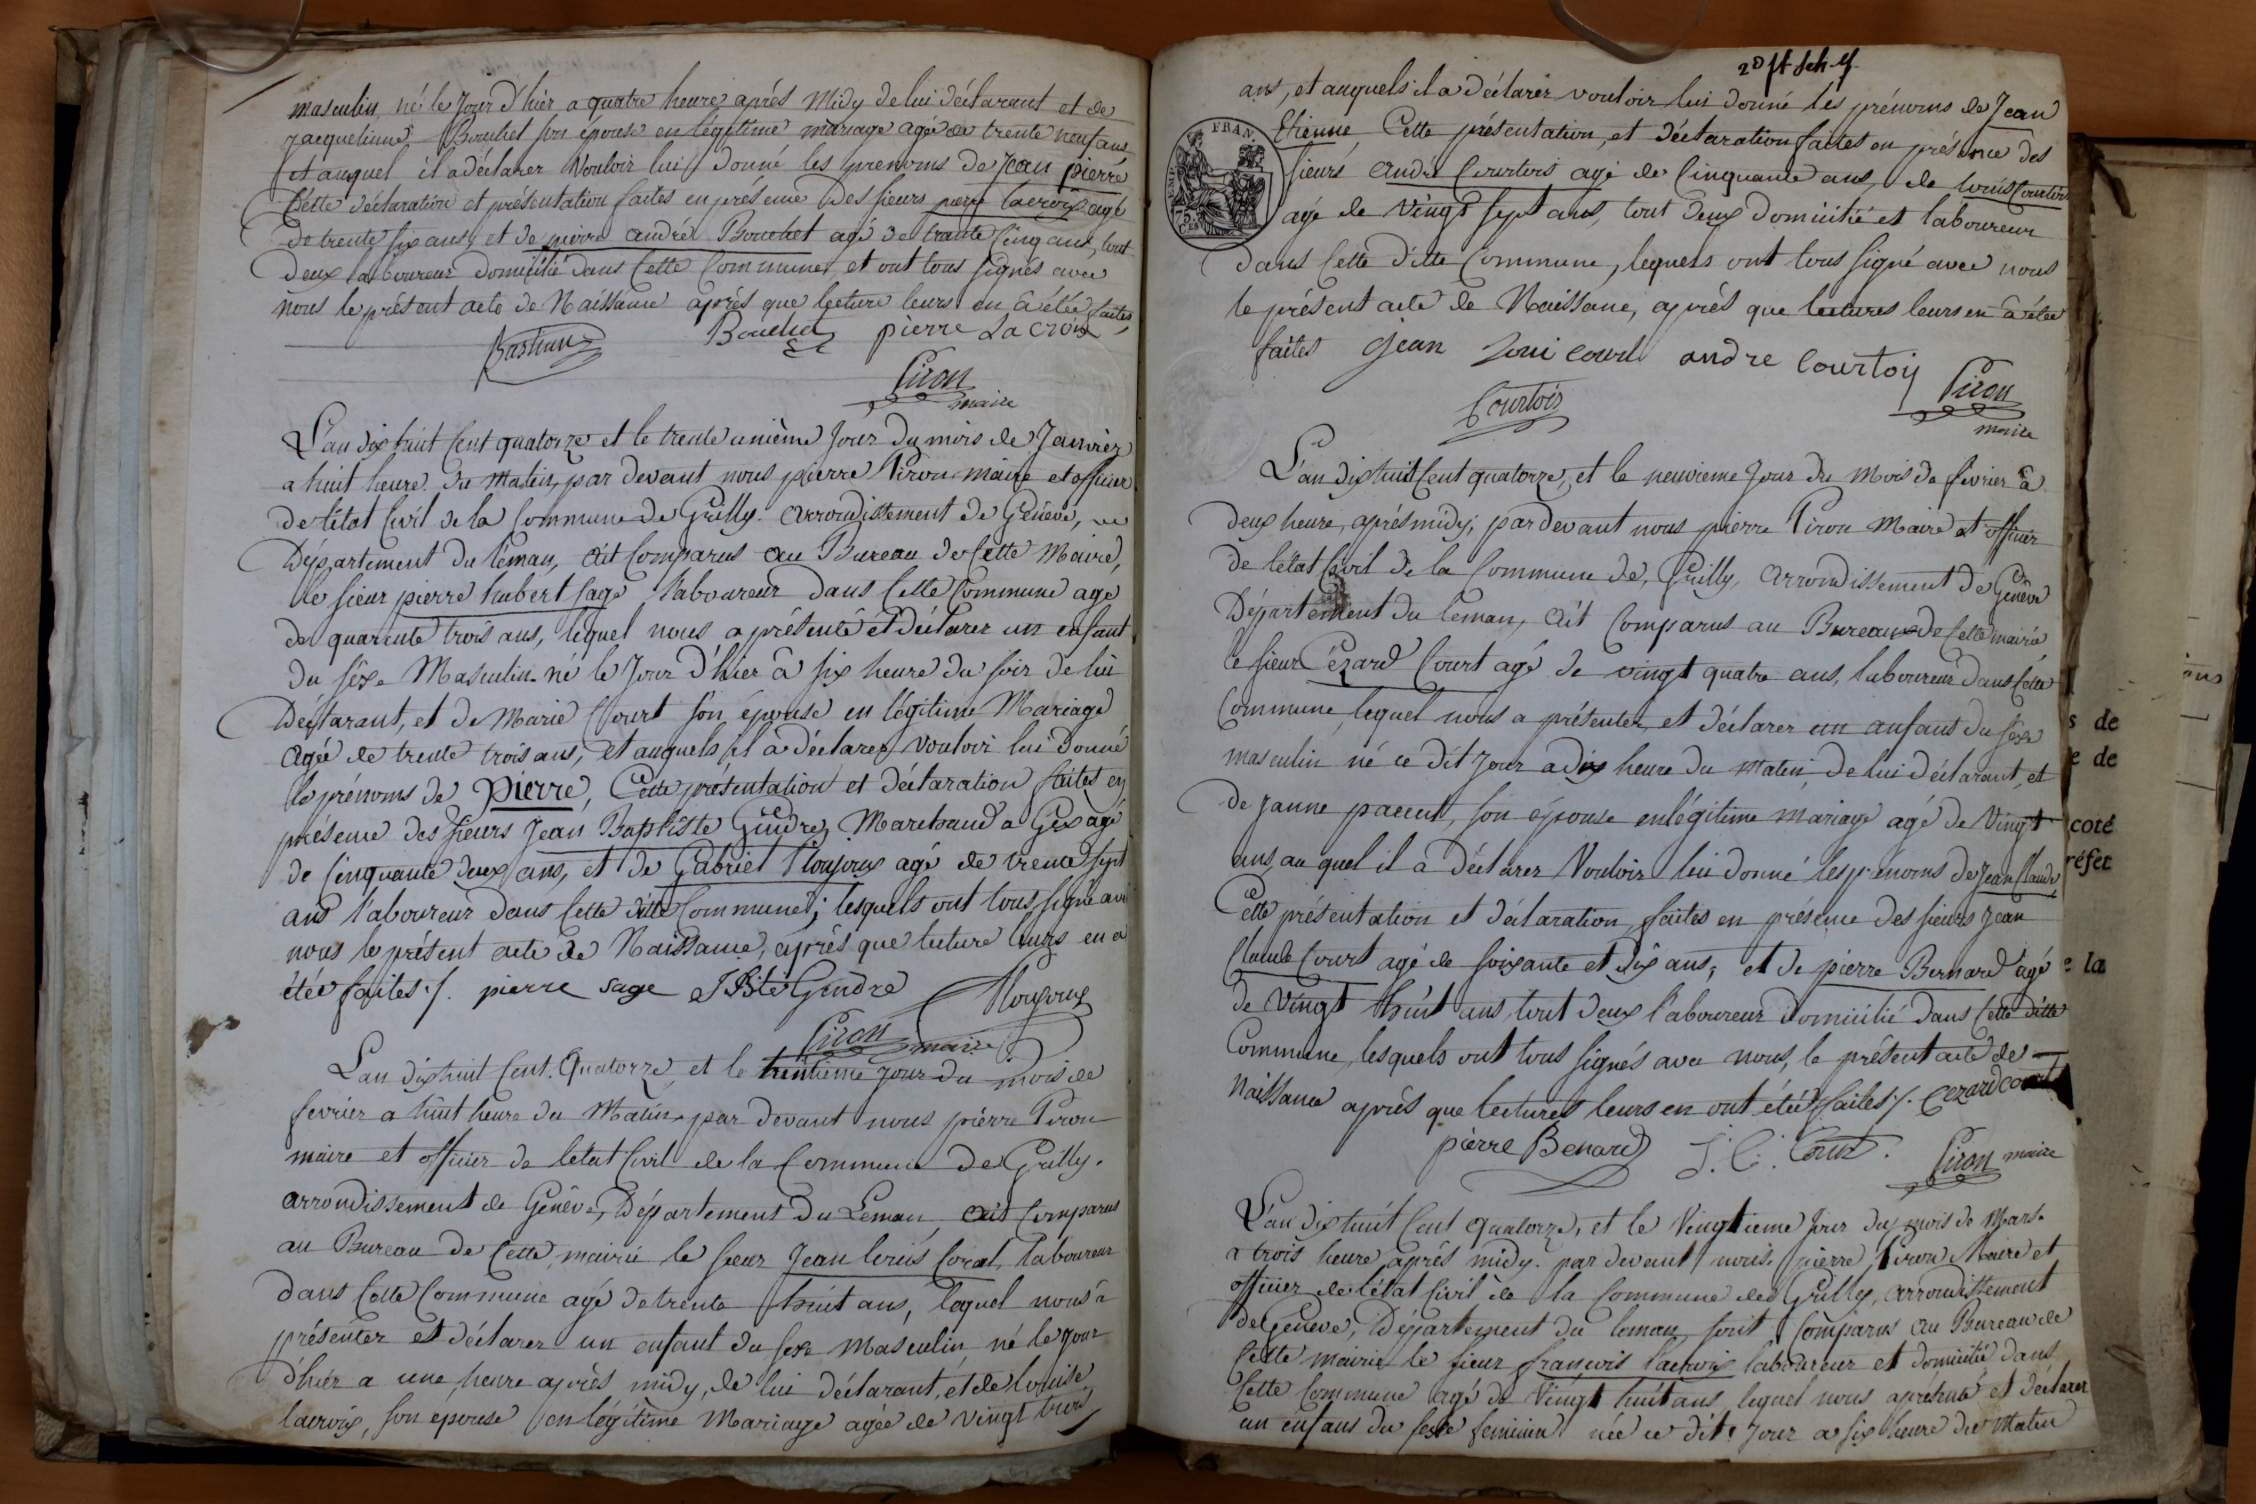 masculin, né le Jour d'hier a quatre heure après Midy de lui déclarant et de
Jacquelinne Bouchet son épouse en légitime mariage agée de trente neuf ans
et auquel il a déclarer Vouloir lui donné les prenoms de Jean pierre
Cette déclaration et présentation faites en présence Des sieurs pierre lacroix agé
de trente six ans, et de pierre andré Bouchet agé de trante Cinq ans, tout
deux laboureur domicilié dans Cette Commune, et ont tous signés avec
nous le présent acte de Naissance après que lecture leurs en à étée faites,
Bastian Bouchet pierre La croix
Piron
maire
L'an dix huit Cent quatorze et le trente unième Jour du mois de Janvier
a huit heure du Matin, par devant nous pierre Piron maire et officier
de l'état Civil de la Commune de Grilly. arrondissement de Genève,
Département du léman, ait Comparus au Bureau de Cette Mairie,
le sieur pierre hubert sage, laboureur dans Cette Commune agé
de quarente trois ans, lequel nous a présenté et déclarer un enfant
du séxe Masculin né le Jour d'hier à six heure du soir de lui
Declarant, et de Marie Court son épouse en légitime Mariage
agée de trente trois ans, et auquels il a déclarer vouloir lui donné
le prénoms de Pierre, Cette présentation et déclaration faites en
présence des sieurs Jean Baptiste Gindre, Marchand a Gex agé
de Cinquante deux ans, et de Gabriel Ploujoux agé de trente sept
ans l'aboureur dans Cette ditte Commune; lesquels ont tous signé avec
nous le présent acte de Naissance, après que lecture leurs en a
étée faites ./. pierre sage J Bte Gindre Ploujoux
Piron maire
L'an dixhuit Cent Quatorze, et le trentieme jour du mois de
fevrier a huit heure du Matin, par devant nous pierre Piron
maire et officier de l'état Civil de la Commune de Grilly.
arrondissement de Genève, Département Du Leman, ait Comparus
au Bureau de Cette mairie le sieur Jean louis laboureur
dans Cette Commune agé de trente huit ans, lequel nous à
présenter et déclarer un enfant du sexe Masculin né le jour
d'hier a une heure après midy, de lui déclarant, et de louise
lacroix, son epouse en légitime Mariage agée de vingt trois
2d ft
ans, et auquels il a déclarer vouloir lui donné les prénoms de Jean
Etienne, Cette présentation, et déclaration faites en présence des
FRAN.
sieurs andré Courtois agé de Cinquante ans, de louis Courtois
75.
agé de Vingt sept ans, tout deux domicilié et laboureur
dans Cette ditte Commune, lequels ont tous signé avec nous
le présent acte de Naissance, après que lectures leurs en à étée
faites Jean andre Courtoy Piron
Courtois
maire
L'an dixhuit Cent quatorze, et le neuvieme Jour du Mois de février à
deux heure, après midy, par devant nous pierre Piron Maire et officier
de l'état Civil de la Commune de, Grilly, arrondissement de Genève
Département du leman, ait Comparus au Bureau de Cette mairie
le sieur Cézard Court agé de vingt quatre ans, laboureur dans Cette
Commune, lequel nous a présenter, et déclarer un anfant du séxe
masculin né ce dit Jour a dix heure du matin de lui déclarant, et
de Janne son épouse en légitime mariage agé de Vingt
ans, au quel il a déclarer Vouloir lui donné les prénoms de Jean Claude
Cette présentation et déclaration, faites en présence des sieurs Jean
Claude Court agé de soixante et dix ans, et de pierre Bernard agé
de Vingt huit ans, tout deux l'aboureur domicilié dans Cette ditte
Commune, lesquels ont tous signés avec nous, le présent acte de
Naissance après que lectures leurs en ont étée faites ./. Cezard court
pierre Benard J. C. Court. Piron maire
L'an dixhuit Cent quatorze, et le Vingtieme Jour du mois de Mars.
a trois heure après midy. par devant nous. pierre Piron Maire et
officier de l'état Civil de la Commune de Grilly, arrondissement
de Genève, Département du leman, sont Comparus au Bureau de
Cette mairie le sieur francois lacroix laboureur et domicilié dans
Cette Commune agé de Vingt huit ans, lequel nous a présenté et declarer
un enfans du sexe feminin née ce dit Jour a six heure du Matin
s de
e de
coté
réfet
e la